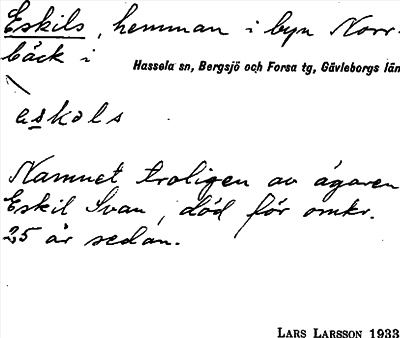 Eskils, hemman i byn Norr-
bäck i
Hassela sn, Bergsjö och Forsa tg, Gävleborgs län
askols
Namnet troligen av ägaren
Eskil Ivan, död för omkr.
25 år sedan.
LARS LARSSON 1933